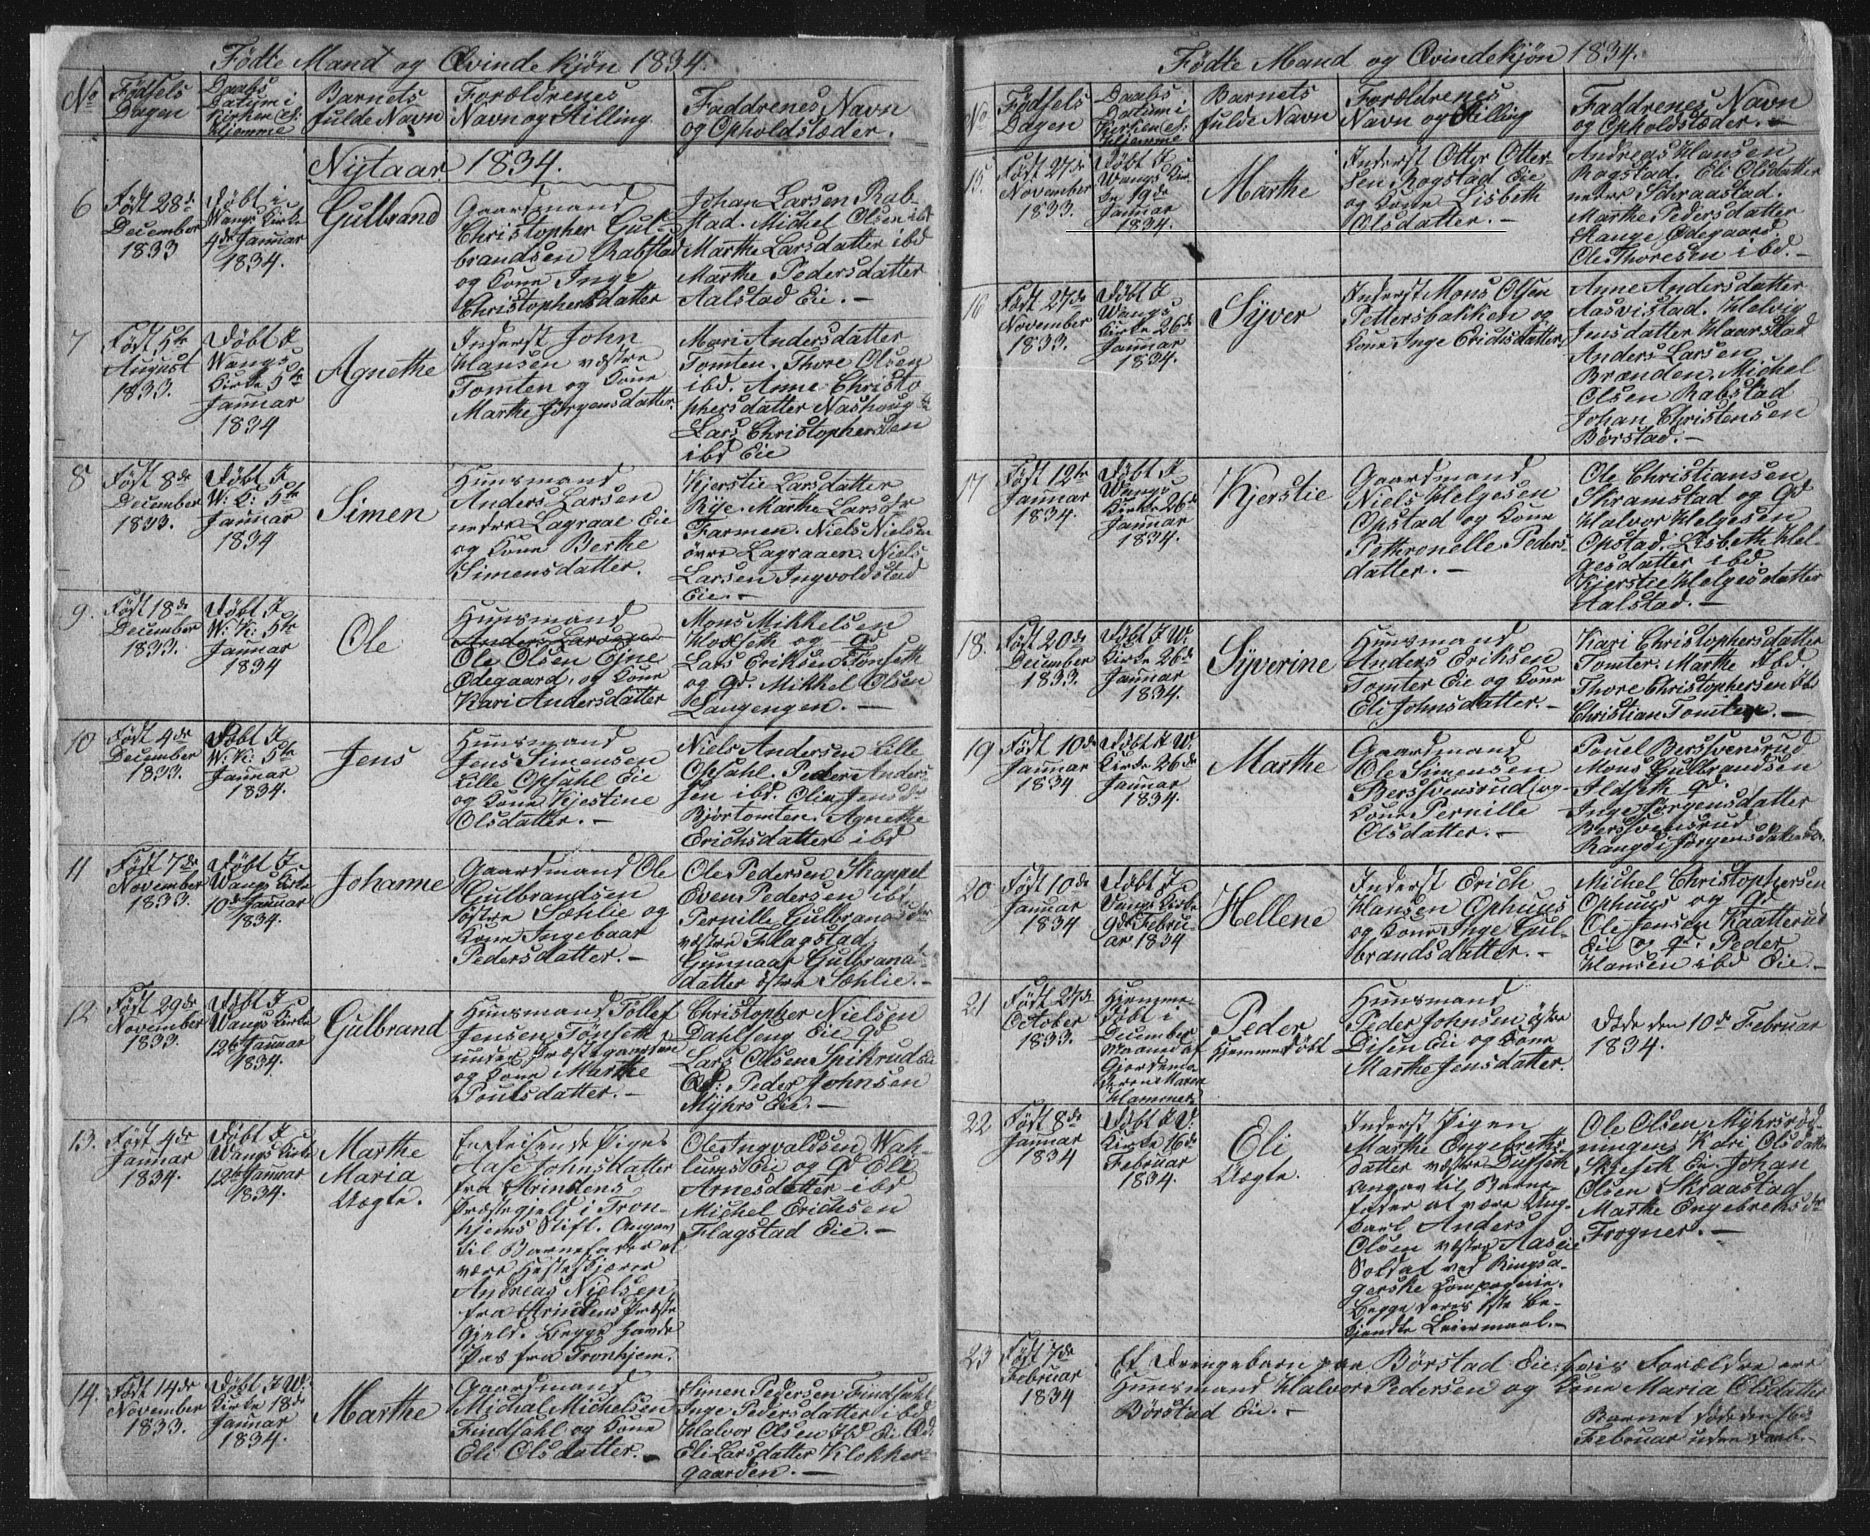 Fødte Mand og Qvindekjøn 1834.
No
Fødsels Dagen
Daabs Datum i Kirken el: Hjemme
Barnets fulde Navn
Forældrenes Navn og Stilling
Faddrenes Navn og Opholdstæder.
Nytaar 1834.
6
Født 28de
December
1833
Døbt i
Wangs Kirke
4de Januar
1834.
Gulbrand
Gaardmand
Christopher Gul-
brandsen Rabstad
og Kone Inge
Christophersdatter
Johan Larsen Rab-
stad. Michel Olsen ibd
Marthe Larsdatter ibd
Marthe Pedersdatter
Aalstad Eie. —
7
Født 5te
August
1833.
Døbt I
Wangs
Kirke 5te
Januar
1834
Agnethe
Inderst John
Hansen vestre
Tomten og Kone
Marthe Jørgensdatter.
Mari Andersdatter
Tomten. Thore Olsen
ibd. Anne Christo
phersdatter Nashoug
Lars Christophersen
ibd Eie
8
Født 8de
December
1833.
Døbt I
W: K: 5te
Januar
1834
Simen
Huusmand
Anders Larsen
nedre Lagraae Eie
og Kone Berthe
Simensdatter.
Kjerstie Larsdatter
Rye. Marthe Larsdr
Farmen. Niels Nielsen
øvre Lagraaen. Niels
Larsen Ingvoldstad
Eie. —
9.
Født 18de
December
1833.
Døbt I
W: K: 5te
Januar
1834
Ole
Huusmand
Anders Larsen
Ole Olsen Ejne
Ødegaard, og Kone
Kari Andersdatter
Mons Mikkelsen
Hodseth og Qd
Lars Eriksen Tønseth
og Qd. Mikkel Olsen
Laugengen. —
10
Født 4de
December
1833.
Døbt I
W: K: 5te
Januar
1834.
Jens
Huusmand
Jens Simensen
Lille Opsahl Eie
og Kone Kjestine
Olsdatter. —
Niels Andersen Lille
Opsahl. Peder Anders-
sen ibd. Olin Jensdr
Bjørtomten. Agnethe
Erichsdatter ibd
11
Født 7de
November
1833.
Døbt I
Wangs Kirke
10de Januar
1834.
Johanne
Gaardmand Ole
Gulbrandsen
østre Sæhlie og
Kone Ingebaar
Pedersdatter. —
Ole Pedersen Skappel
Even Pedersen ibd
Pernille Gulbransdatter
vestre Flagstad
Gunnaar Gulbrans
datter østre Sæhlie. —
12
Født 29de
November
1833.
Døbt I
Wangs Kirke
12te Januar
1834.
Gulbrand
Huusmand Tollef
Jensen Tønseth
under Præstegaarden
og Kone Marthe
Poulsdatter. —
Christopher Nielsen
Dahlseng Eie Qd
Lars Olsen Spikrud Eie
Qd: Peder Johnsen
Myhrs Eie. —
13.
Født 4de
Januar
1834.
Døbt I
Wangs Kirke
12te Januar
1834.
Marthe
Maria
Uægte.
Indreisende Pigen
Aase Johnsdatter
fra Strindens
Præstegjeld i Tron-
hjems Stift. Angav
til Barnefader at
være Hestekjører
Andreas Nielsen
fra Strindens Præste
Gjeld. Begge havde
Pas fra Tronhjem.
Ole Ingvaldsen Wak-
lums Eie og Qd Eli
Arnesdatter ibd
Michel Erichsen
Flagstad Eie. —
14.
Født 14de
November
1833.
Døbt I W:
Kirke 18de
Januar
1834.
Marthe
Gaardmand
Michal Michelsen
Findsahl og Kone
Eli Olsdatter. —
Simen Pedersen Findsahl
Inge Pedersdatter ibd
Halvor Olsen Ibd Ei Qd
Eli Larsdatter Klokker-
gaarden. —
Fødte Mand og Qvindekjøn 1834.
No
Fødsels Dagen
Daabs Datum i Kirken el: Hjemme
Barnets fulde Navn
Forældrenes Navn og Stilling
Faddrenes Navn og Opholdstæder. —
15.
Født 27de
November
1833.
Døbt I
Wangs Kir-
ke 19de
Januar
1834.
Marthe
Inderst Otter Otter-
sen Rogstad Eie
og Kone Lisbeth
Olsdatter. —
Andreas Hansen
Rogstad. Eli Olsdatter
nedre Schraastad.
Marthe Pedersdatter
Stange Ødegaard
Ole Thoresen ibd. —
16
Født 27de
November
1833.
Døbt I
Wangs
Kirke 26de
Januar
1834.
Syver
Inderst Mons Olsen
Pettersbakken og
Kone Inge Eridisdatter,
Anne Andersdatter
Aasvistad. Helvig
Jensdatter Haarstad
Anders Larsen
Brænden. Michel
Olsen Rabstad
Johan Christensen
Børstad. —
17
Født 12te
Januar
1834.
Døbt I
Wangs
Kirke 26de
Januar
1834.
Kjerstie
Gaardmand
Niels Helgesen
Opstad og Kone
Pethronelle Peders-
datter. —
Ole Christiansen
Skramstad og Qd
Halvor Helgesen
Opstad. Lisbeth Hel-
gesdatter ibd.
Kjerstie Helgesdatter
Aalstad. —
18.
Født 20de
December
1833.
Døbt I W:
Kirke 26de
Januar
1834.
Syverine
Huusmand
Anders Eriksen
Tomter Eie og Kone
Eli Johnsdatter. —
Kari Christophersdatter
Tomter. Marthe ibd.
Thore Christophersen ibd
Christian Tomten. —
19
Født 10de
Januar
1834
Døbt I W:
Kirke 26de
Januar
1834.
Marthe
Gaardmand
Ole Simensen
Berssvensrud og
Kone Pernille
Olsdatter. —
Pouel Berssvensrud
Mons Gulbrandsen
Ilseth Qd.
Inge Jørgensdatter
Berssvensrud
Rangdi Jørgensdatter ibd.
20
Født 10de
Januar
1834
Døbt I
Vangs Kirke
9de Febru-
ar 1834
Hellene
Inderst Erich
Hansen Ophuus
og Kone Inge Gul-
brandsdatter. —
Michel Christophersen
Ophuus og Qd
Ole Jensen Kaatterud
Ei og Qd. Peder
Hansen ibd Eie. —
21
Født 27de
October
1833.
Hjemme
Døbt i
December
Maaned af
Gjordemo
deren Maren
Hammer
Peder
Hjemmedøbt
Huusmand
Peder Johnsen østre
Disen Eie og Kone
Marthe Jensdatter.
Døde den 10de Februar
1834.
22
Født 8de
Januar
1834
Døbt I V:
Kirke 16de
Februar
1834.
Eli
Uægte.
Inderst Pigen
Marthe Engebreths-
datter vestre Dufseth
Angav til Barne-
fader at være Ung-
karl Anders
Olsen vestre Aas Eie
Soldat ved Ringsa-
gerske Compagnie.
Begge deres 1ste be-
kjendte Leiermaal. —
Ole Olsen Myhrsrød-
ningen. Kari Olsdatter
Skieseth Ei. Johan
Olsen Skraastad
Marthe Engebrethsdr
Frogner. —
23
Født 7de
Februar
1834
Et Drengebarn paa Børstad Eie: hvis Forældre ere
Huusmand Halvor Pedersen og Kone Maria Olsdatter
Børstad Eie. —
Barnet døde den 16de
Februar uden Daab. —